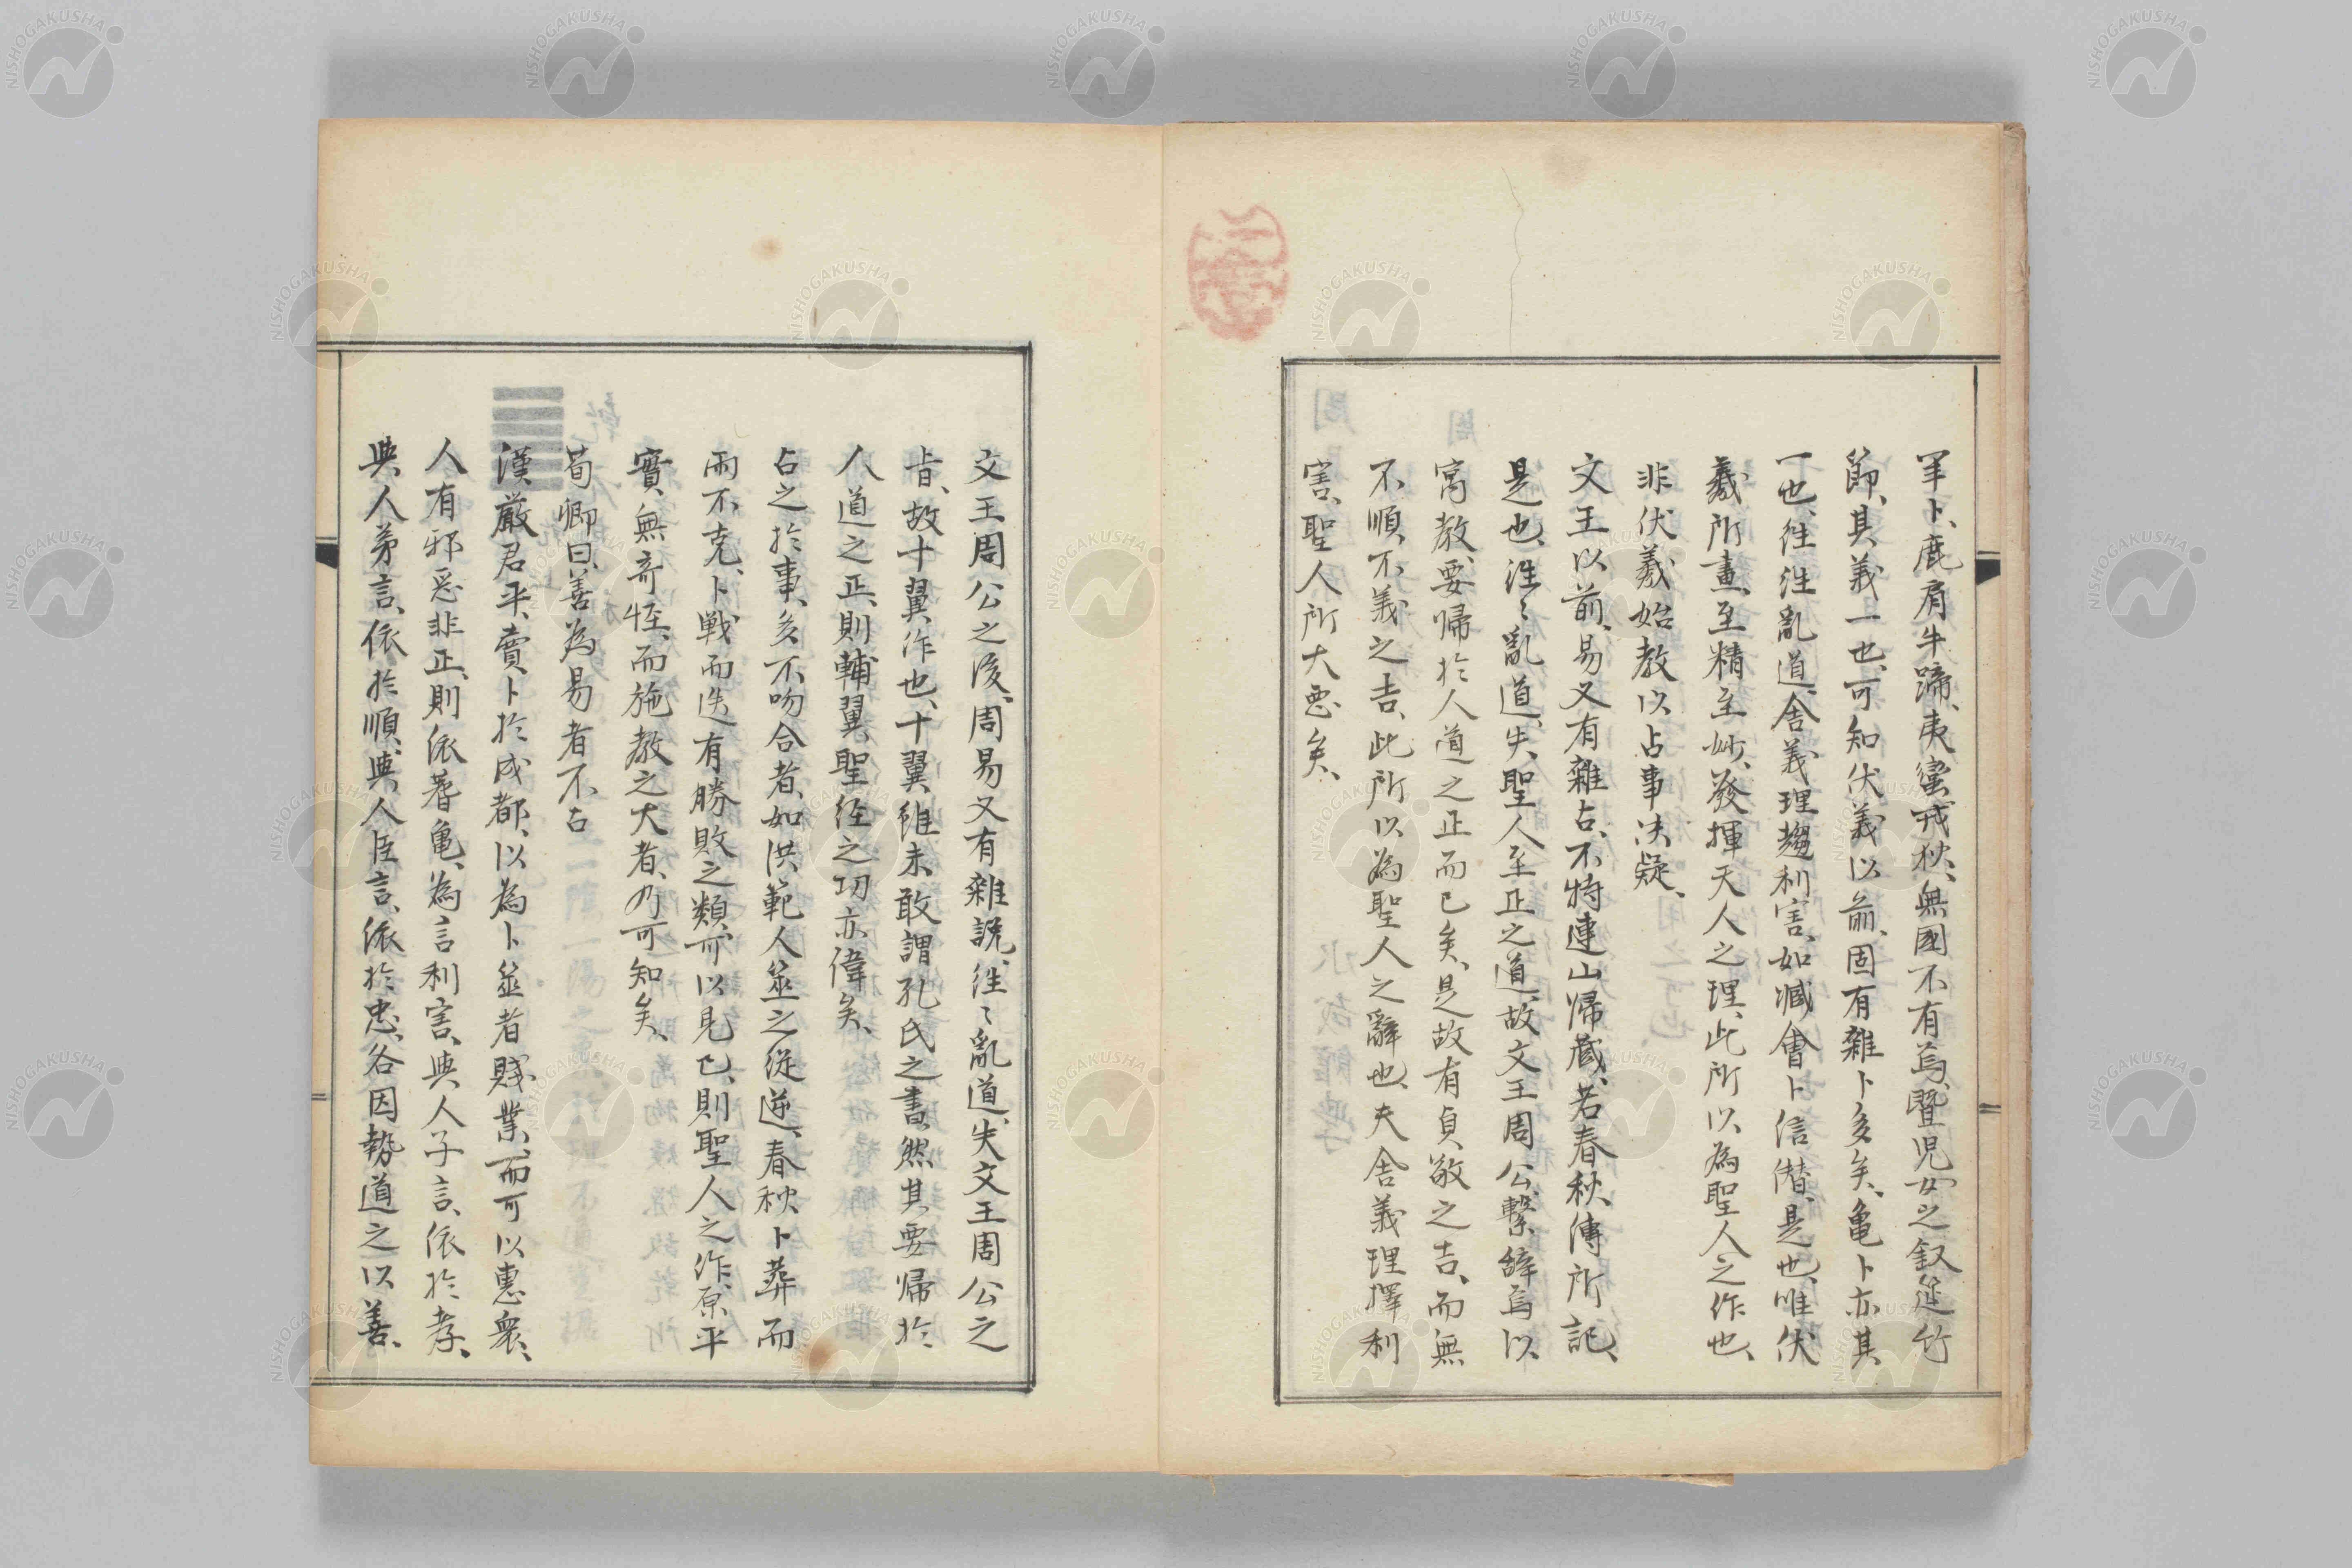 羊卜、鹿肩牛蹄、夷蛮戎狄、無國不有焉、曁児女之釵筵竹
節、其義一也、可知伏義以前、固有雜卜多矣、亀卜亦其
一也、往往亂道、舎義理趨利害、如臧會卜信僣、是也、唯伏
羲所畫、至精至妙、發揮天人之理、此所以為聖人之作也、
非伏羲始教以占事决疑、
文王以前、易又有雜占、不特連山歸蔵、若春秋傳所記、
是也、往〻亂道、失聖人至正之道、故文王周公、繫辞焉以
寓教、要歸於人道之正而已矣、是故有貞敬之吉、而無
不順不義之吉、此所以為聖人之辭也、夫舎義理擇利
害、聖人所大惡矣、
文王周公之後、周易又有雜説、往〻亂道、失文王周公之
旨、故十翼作也、十翼雖未敢謂孔氏之書、然其要歸於
人道之正、則輔翼聖経之功亦偉矣、
占之於事、多不吻合者、如洪範人筮之從逆、春秋卜葬而
雨不克、卜戦而迭有勝敗之類、可以見已、則聖人之作、原平
實無竒恠、而施教之大者、乃可知矣、
荀卿曰、善為易者不占
漢嚴君平、賣卜於成都、以為卜筮者賤業、而可以惠衆、
人有邪惡非正、則依蓍亀、為言利害、與人子言、依於孝、
與人弟言、依於順、與人臣言、依於忠、各因勢道之以善、
NISHOGAKUSHA